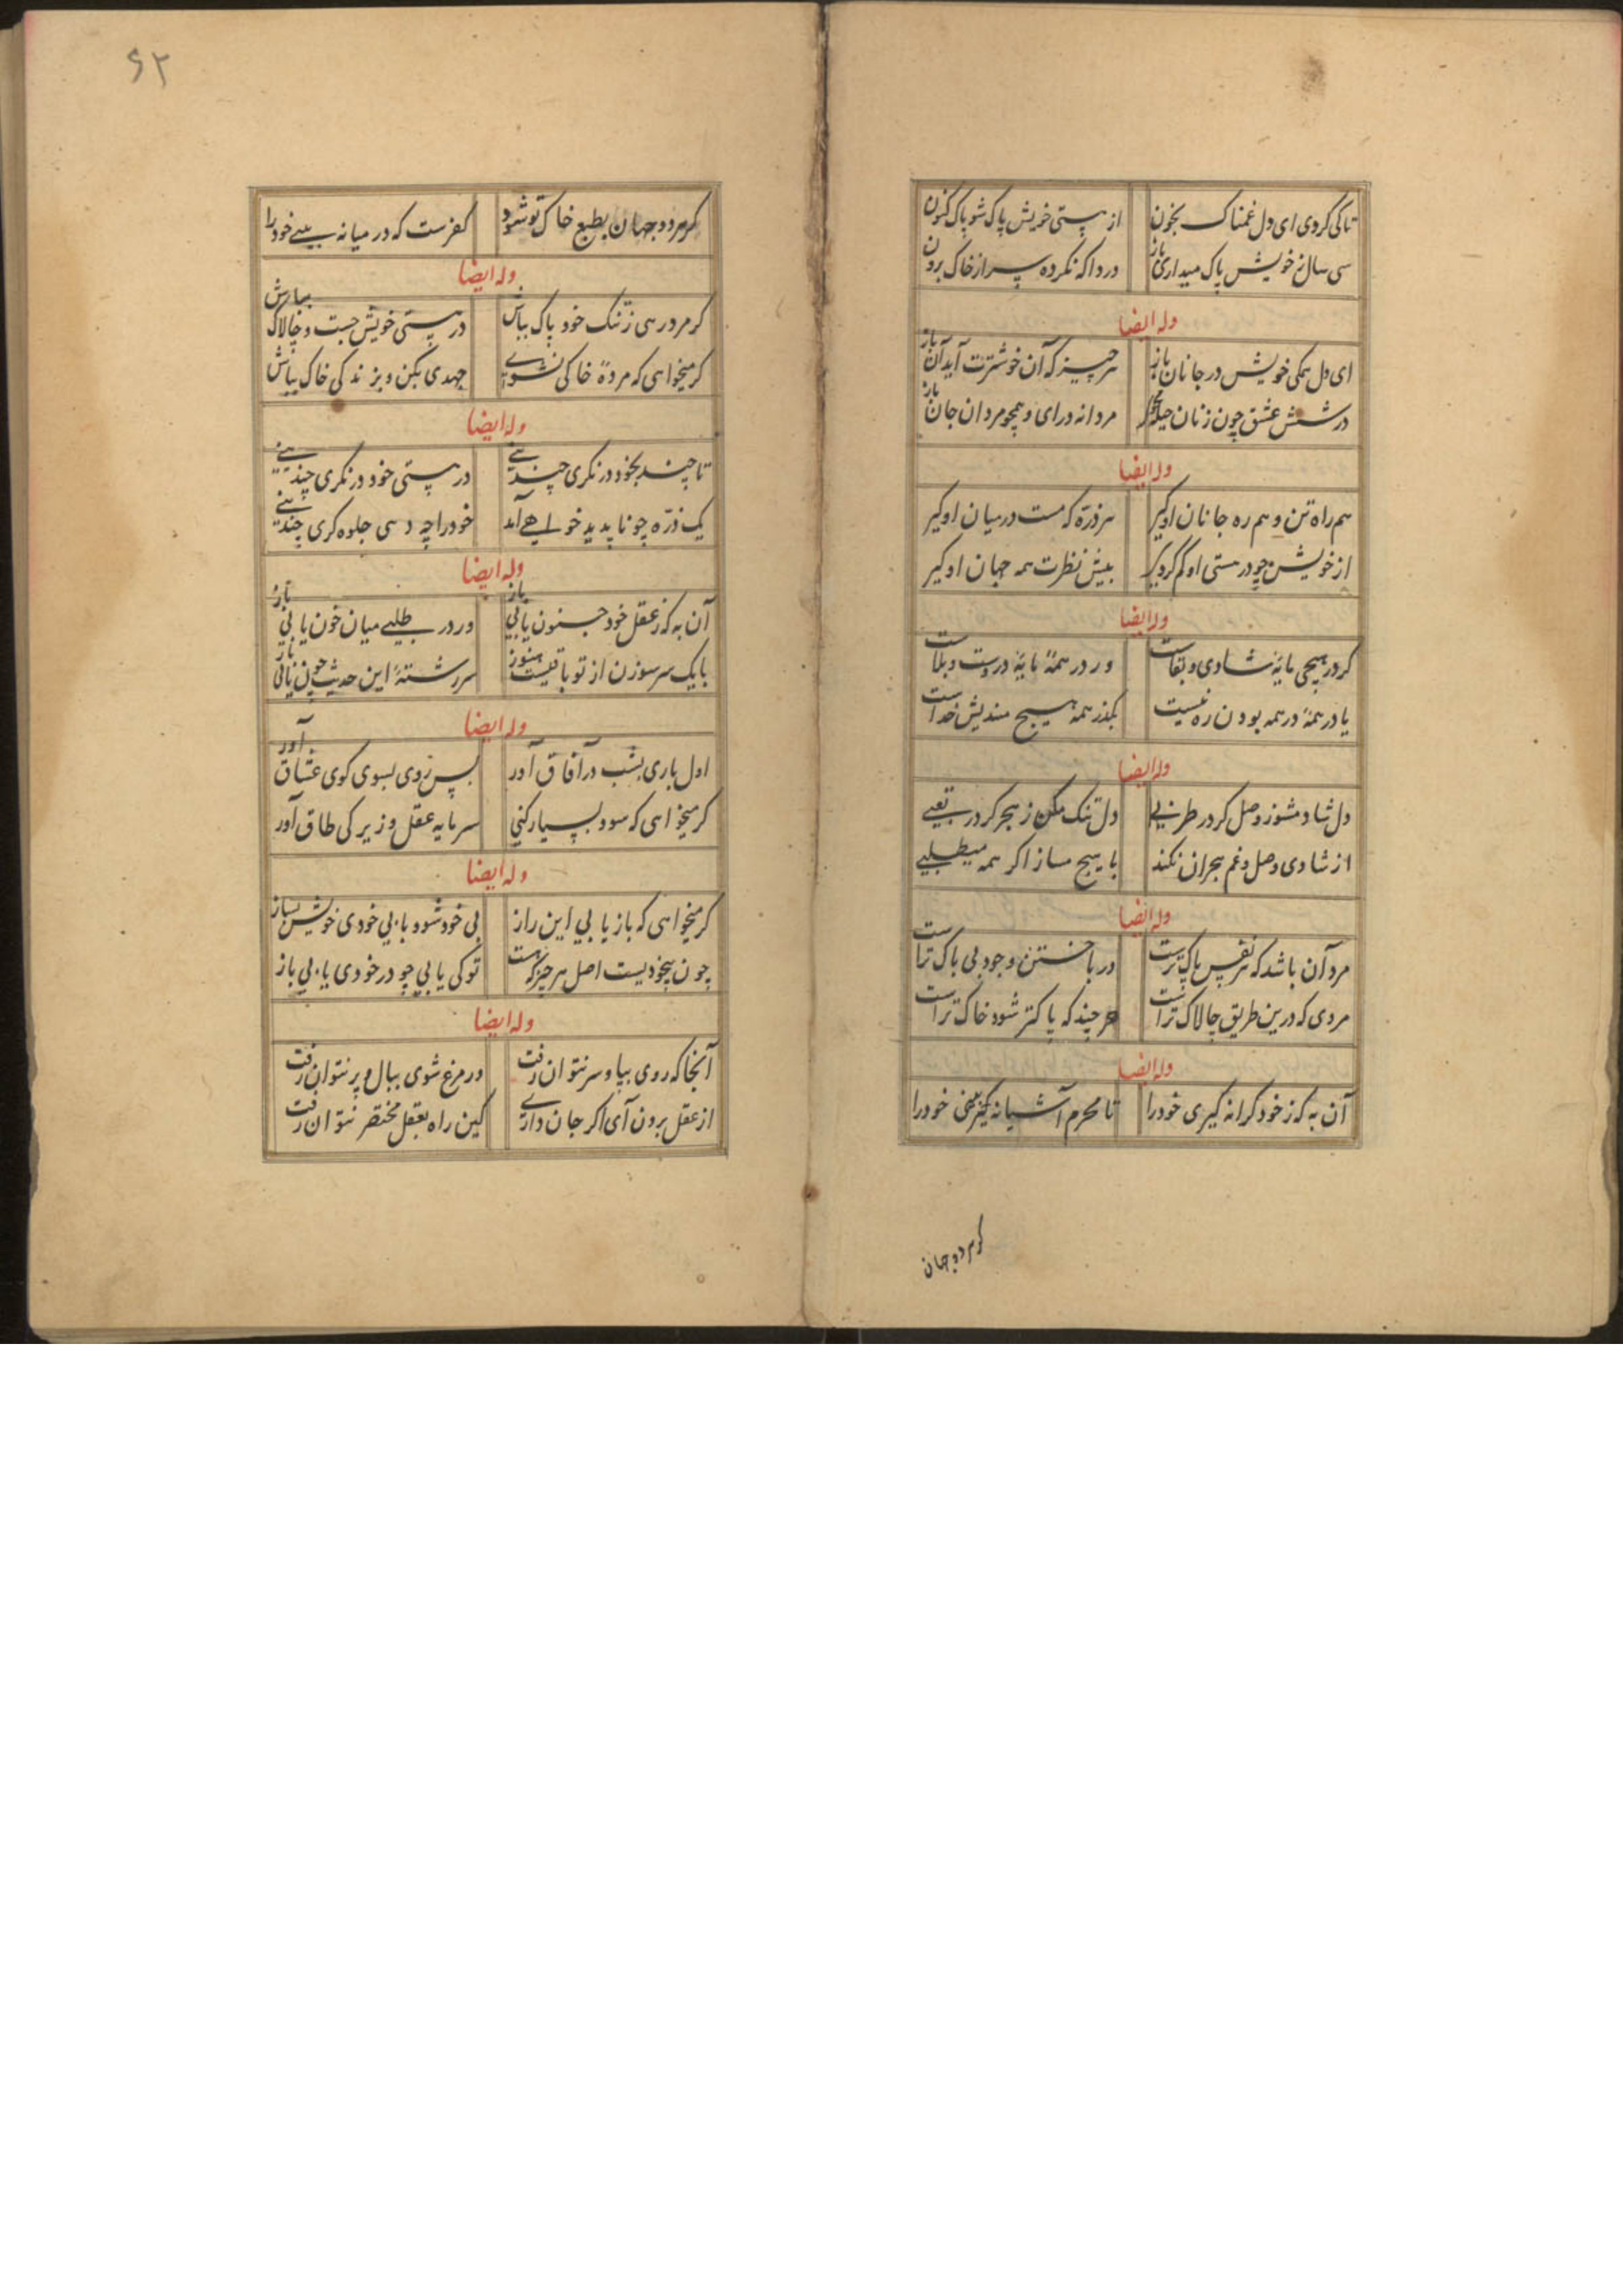 تا کی کردی ای دل غمناک بخون از پستی خویش پاک شو پاک کنون
سی سال ز خویش پاک میداری باز دردا که نکرده سر از خاک برون
وله ایضا
ای دل همکی خویش در جانان باز هر چیز که آن خوشترت آید آن باز
در ششدر عشق چون زنان حیله مردانه درای و همچو مردان جان باز
وله ایضا
هم راه تن و هم ره جانان او کیر هر ذره که هست در میان او کیر
از خویش چو در هستی او کم کردی پیش نظرت همه جهان او کیر
وله ایضا
کر در هیچی مایهٔ شادی و بقاست ور در همهٔ مایهٔ دردست و بلاست
یا در همهٔ در همه بودن ره نیست بکذر همه هیچ مندیش خداست
وله ایضا
دل شاد مشو ز وصل کر در طربی دل تنک مکن ز هجر کر در تعبی
از شادی وصل و غم هجران نکند با هیچ ساز اکر همه میطلبی
وله ایضا
مرد آن باشد که هر نفس پاک ترست در باختن وجود بی باک تراست
مردی که درین طریق چالاک تراست هر چند که پاکتر شود خاک تراست
وله ایضا
آن به که ز خود کرانه کیری خود را تا محرم آشیانه بینی خود را
کر مرد دو جهان
۶۲
کر مرد دو جهان بطبع خاک تو شود کفرست که در میانه بینی خود را
وله ایضا
کر مرد رهی ز ننک خود پاک بباش در هستی خویش چست و چالاک بباش
کر میخواهی که مردهٔ خاکی نشوی جهدی بکن و بزندکی خاک بباش
وله ایضا
تا چند بخود در نکری چندینی در هستی خود در نکری چندینی
یک ذره چو ناپدید خواهی آمد خود را چه دهی جلوه کری چندینی
وله ایضا
آن به که ز عقل خود جنون یابی باز ور در طلبی میان خون یابی باز
با یک سر سوزن از تو باقیست هنوز سر رشتهٔ این حدیث چون یابی باز
وله ایضا
اول باری پشت در آفاق آور پس روی بسوی کوی عشاق آور
کر میخواهی که سود بسیار کنی سرمایه عقل و زیرکی طاق آور
وله ایضا
کر میخواهی که باز یابی این راز بی خود شو و با بی خودی خویش بساز
چون بیخودیست اصل هر چیز که هست تو کی یابی چو در خودی یابی باز
وله ایضا
آنجا که روی بپا و سر نتوان رفت ور مرغ شوی ببال و پر نتوان رفت
از عقل برون آی اکر جان داری کین راه بعقل مختصر نتوان رفت